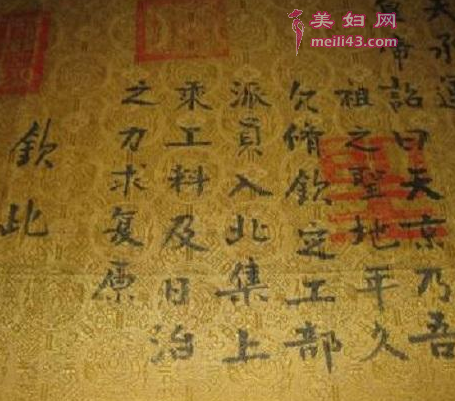 美妇网
meili43.com
天承運
皇帝詔曰天京乃吾
祖之聖地年久
欠脩欽定工部
派員入北集上
乘工料及日治
之力求复原
欽此